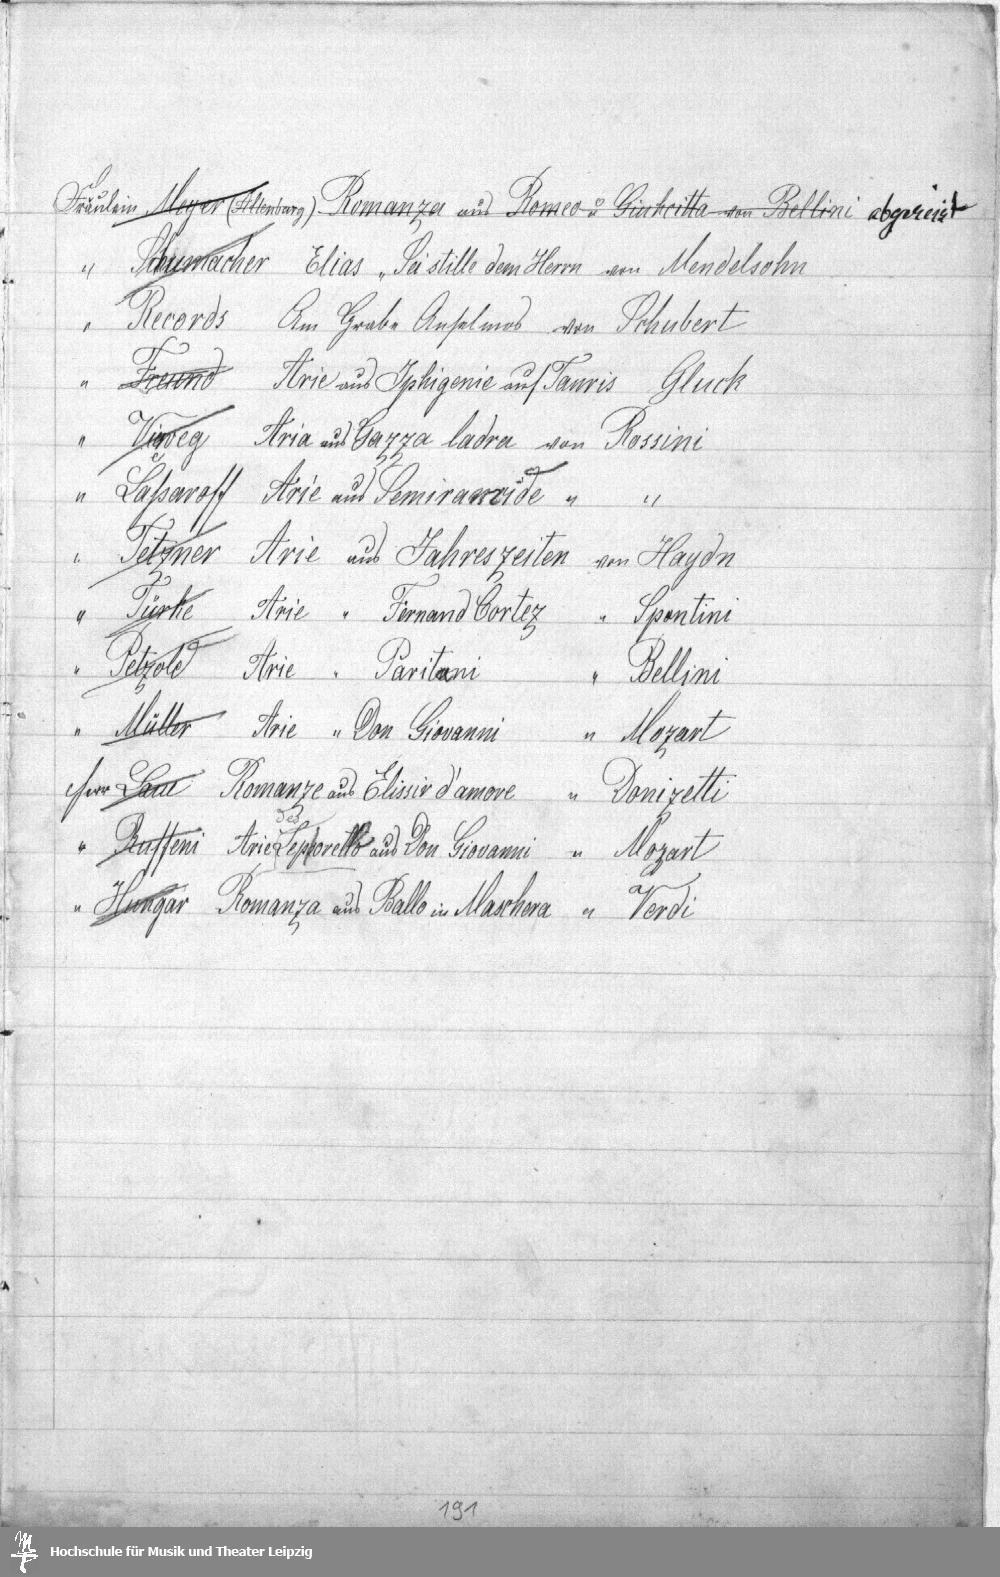 Fräulein Meyer (Altenburg) Romanza aus Romeo u Giulietta von Bellini abgereist
" Schumacher Elias „Sei stille dem Herrn von Mendelsohn
" Records Am Grabe Anselmos von Schubert
" Freund Arie aus Iphigenie auf Tauris Gluck
" Vieweg Aria aus Gazza ladra von Rossini
" Laßaroff Arie aus Semiramide " "
" Tetzner Arie aus Jahreszeiten von Haydn
" Türke Arie " Fernand Cortez " Spontini
" Petzold Arie " Paritani " Bellini
" Müller Arie " Don Giovanni " Mozart
Herr Lau Romanze aus Elissir d'amore " Donizetti
" Ruffeni Arie des Leporello aus Don Giovanni " Mozart
" Hungar Romanza aus Ballo in Maschera " Verdi
191
Hochschule für Musik und Theater Leipzig